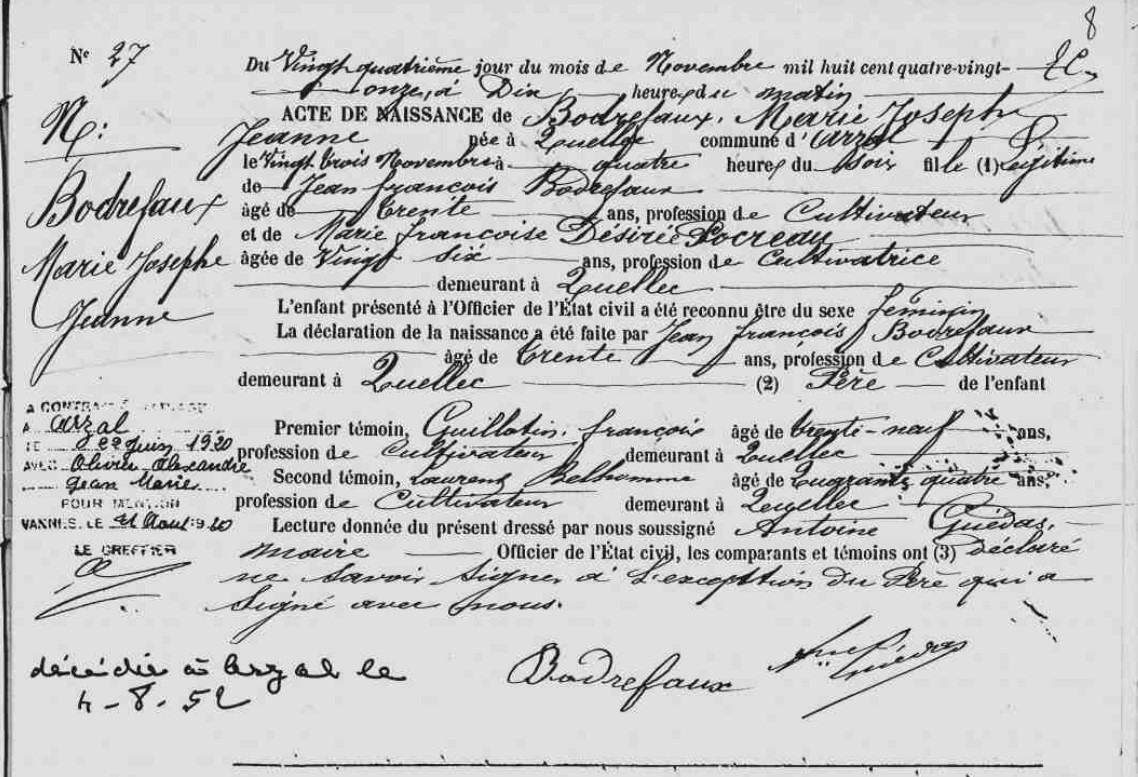 8
N° 27
Du Vingt quatrième jour du mois de Novembre mil huit cent quatre-vingt-
onze, à Dix heures du matin
ACTE DE NAISSANCE de Bodrefaux, Marie Josephe
Jeanne née à Quellec commune d'Arzal
le Vingt trois Novembre à quatre heures du Soir fille (1) Légitime
de Jean François Bodrefaux
âgé de trente ans, profession de Cultivateur
et de Marie Françoise Désirée
âgée de Vingt Six ans, profession de Cultivatrice
demeurant à Quellec
L'enfant présenté à l'Officier de l'État civil a été reconnu être du sexe féminin
La déclaration de la naissance a été faite par Jean François Bodrefaux
âgé de trente ans, profession de Cultivateur
demeurant à Quellec (2) Père de l'enfant
Premier témoin, Guillotin François âgé de trente-neuf ans,
profession de Cultivateur demeurant à Quellec
Second témoin, Laurent Belhomme âgé de Quarante quatre ans,
profession de Cultivateur demeurant à Quellec
Lecture donnée du présent dressé par nous soussigné Antoine Guédas,
maire Officier de l'État civil, les comparants et témoins ont (3) déclaré
ne Savoir Signer à l'exception du Père qui a
Signé avec nous.
Bodrefaux
Guédas
N:
Bodrefaux
Marie Josephe
Jeanne
A CONTRACTÉ MARIAGE
A Arzal
LE 22 Juin 1920
AVEC Olivier Alexandre
Jean Marie
POUR MENTION
VANNES, LE 21 Aout 1920
LE GREFFIER
décédée à Arzal le
4-8-52